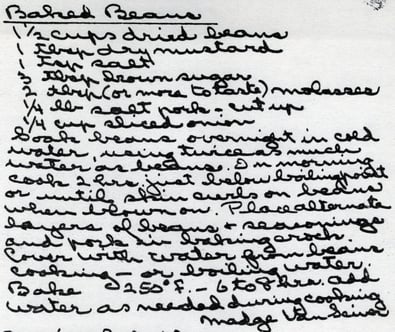 Baked Beans
1 1/2 cups dried beans
1 tbsp dry mustard
1 tsp salt
3 tbsp brown sugar
2 tbsp (or more to taste) molasses
1/4 lb salt pork - cut up
1/4 cup sliced onion
Soak beans overnight in cold
water, using twice as much
water as beans. In morning
cook 2 hrs. just below boiling point
or until skin curls on beans
when blown on. Place alternate
layers of beans + seasonings
and pork in baking crock
Cover with water from beans
cooking - or boiling water.
Bake 250° F. - 6 to 8 hrs. Add
water as needed during cooking
Madge